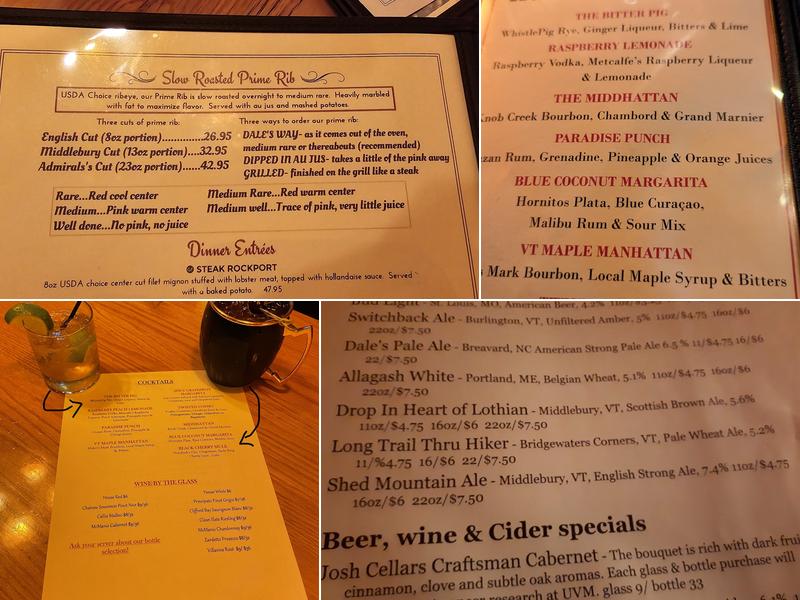 Slow Roasted Prime Rib
USDA Choice ribeye, our Prime Rib is slow roasted overnight to medium rare. Heavily marbled
with fat to maximize flavor. Served with au jus and mashed potatoes.
Three cuts of prime rib:
English Cut (8oz portion).............26.95
Middlebury Cut (13oz portion)....32.95
Admirals's Cut (23oz portion)......42.95
Three ways to order our prime rib:
DALE'S WAY- as it comes out of the oven,
medium rare or thereabouts (recommended)
DIPPED IN AU JUS- takes a little of the pink away
GRILLED- finished on the grill like a steak
Rare...Red cool center
Medium...Pink warm center
Well done...No pink, no juice
Medium Rare...Red warm center
Medium well...Trace of pink, very little juice
Dinner Entrées
STEAK ROCKPORT
8oz USDA choice center cut filet mignon stuffed with lobster meat, topped with hollandaise sauce. Served
with a baked potato. 47.95
THE BITTER PIG
WhistlePig Rye, Ginger Liqueur, Bitters & Lime
RASPBERRY LEMONADE
Raspberry Vodka, Metcalfe's Raspberry Liqueur
& Lemonade
THE MIDDHATTAN
Knob Creek Bourbon, Chambord & Grand Marnier
PARADISE PUNCH
zan Rum, Grenadine, Pineapple & Orange Juices
BLUE COCONUT MARGARITA
Hornitos Plata, Blue Curaçao,
Malibu Rum & Sour Mix
VT MAPLE MANHATTAN
s Mark Bourbon, Local Maple Syrup & Bitters
COCKTAILS
THE BITTER PIG
RASPBERRY PEACH LEMONADE
PARADISE PUNCH
VT MAPLE MANHATTAN
MARGARITA
MIDDHATTAN
BLUE COCONUT MARGARITA
BLACK CHERRY MULE
WINE BY THE GLASS
House Red $6
McManis Cabernet
House White $6
McManis Chardonnay
Zardetto Prosecco
Ask your server about our bottle
selection!
Bud Light - St. Louis, MO, American Beer, 4.2%
Switchback Ale - Burlington, VT, Unfiltered Amber, 5% 11oz/$4.75 16oz/$6
22oz/$7.50
Dale's Pale Ale - Breavard, NC American Strong Pale Ale 6.5 % 11/$4.75 16/$6
22/$7.50
Allagash White - Portland, ME, Belgian Wheat, 5.1% 11oz/$4.75 16oz/$6
22oz/$7.50
Drop In Heart of Lothian - Middlebury, VT, Scottish Brown Ale, 5.6%
11oz/$4.75 16oz/$6 22oz/$7.50
Long Trail Thru Hiker - Bridgewaters Corners, VT, Pale Wheat Ale, 5.2%
11/%4.75 16/$6 22/$7.50
Shed Mountain Ale - Middlebury, VT, English Strong Ale, 7.4% 11oz/$4.75
16oz/$6 22oz/$7.50
Beer, wine & Cider specials
Josh Cellars Craftsman Cabernet - The bouquet is rich with dark frui
cinnamon, clove and subtle oak aromas. Each glass & bottle purchase will
research at UVM. glass 9/ bottle 33